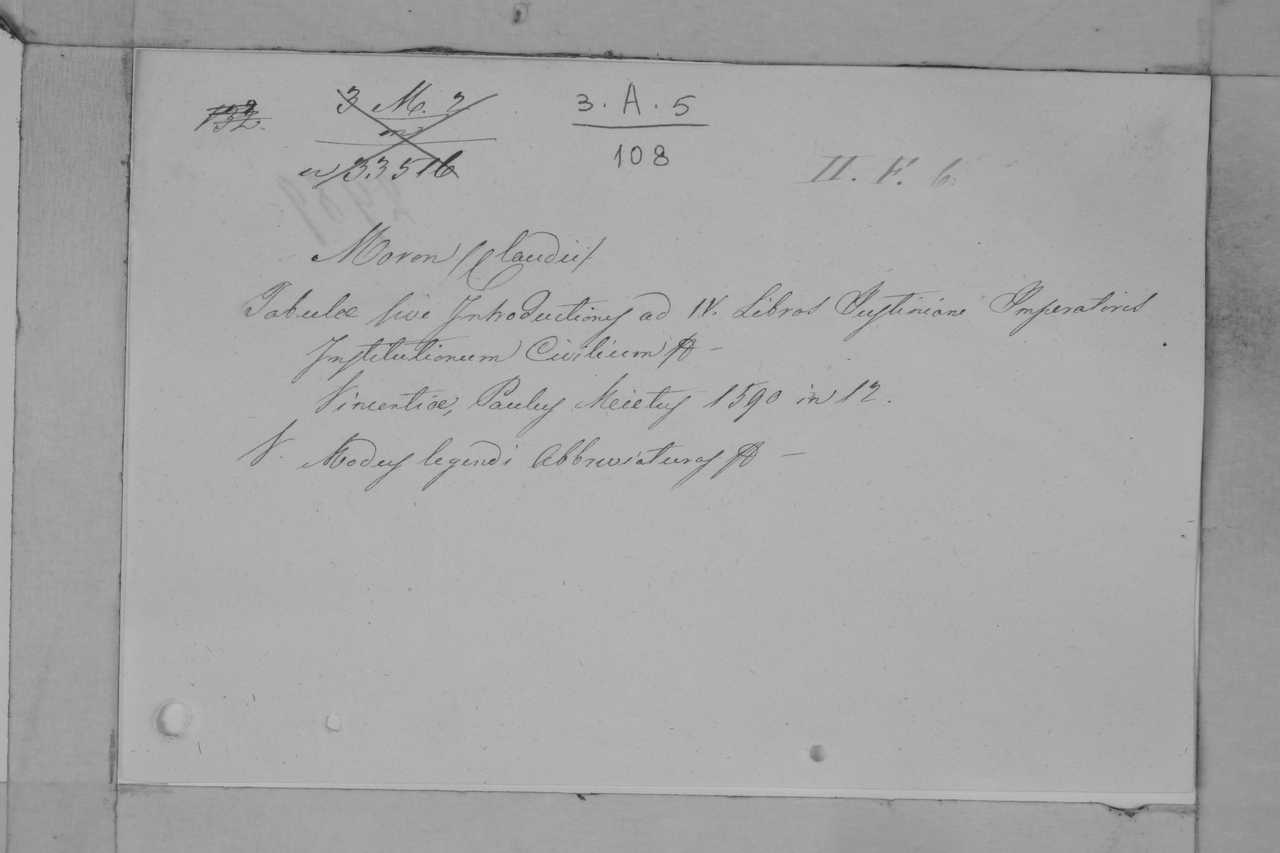 132. 3 M. 2 3. A. 5
33516 108 II. F. 6.
Moron /Claudii/
Tabulæ sive Introductiones ad IV. Libros Justiniani Imperatoris
Institutionum Civilium &
Vincentiæ, Paulus Meietus 1590 in 12.
V. Modus legendi Abbreviaturas & –